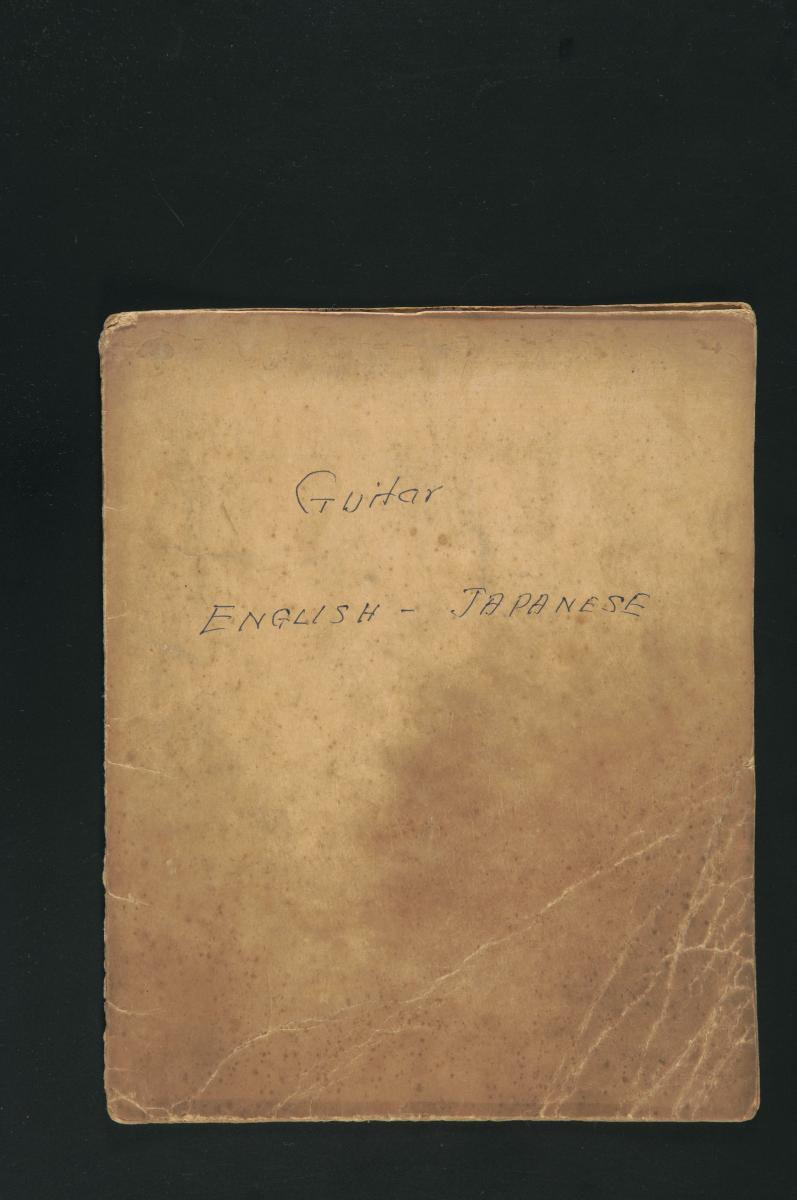 Guitar
ENGLISH - JAPANESE